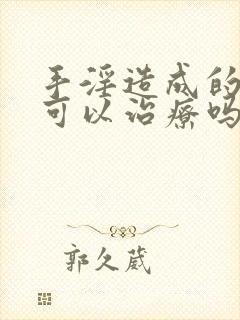 手淫造成的
可以治疗吗
郭久葳